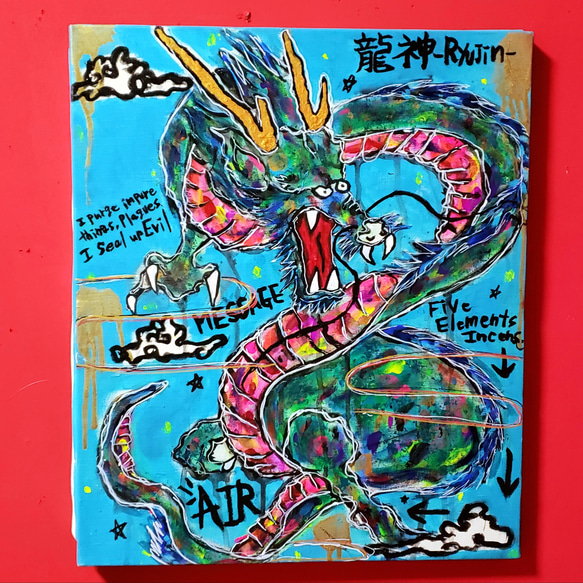 龍神-Ryujin-
I purge impure
things, plagues
I seal up Evil
MESSAGE
Five
Elements
Incens.
AIR